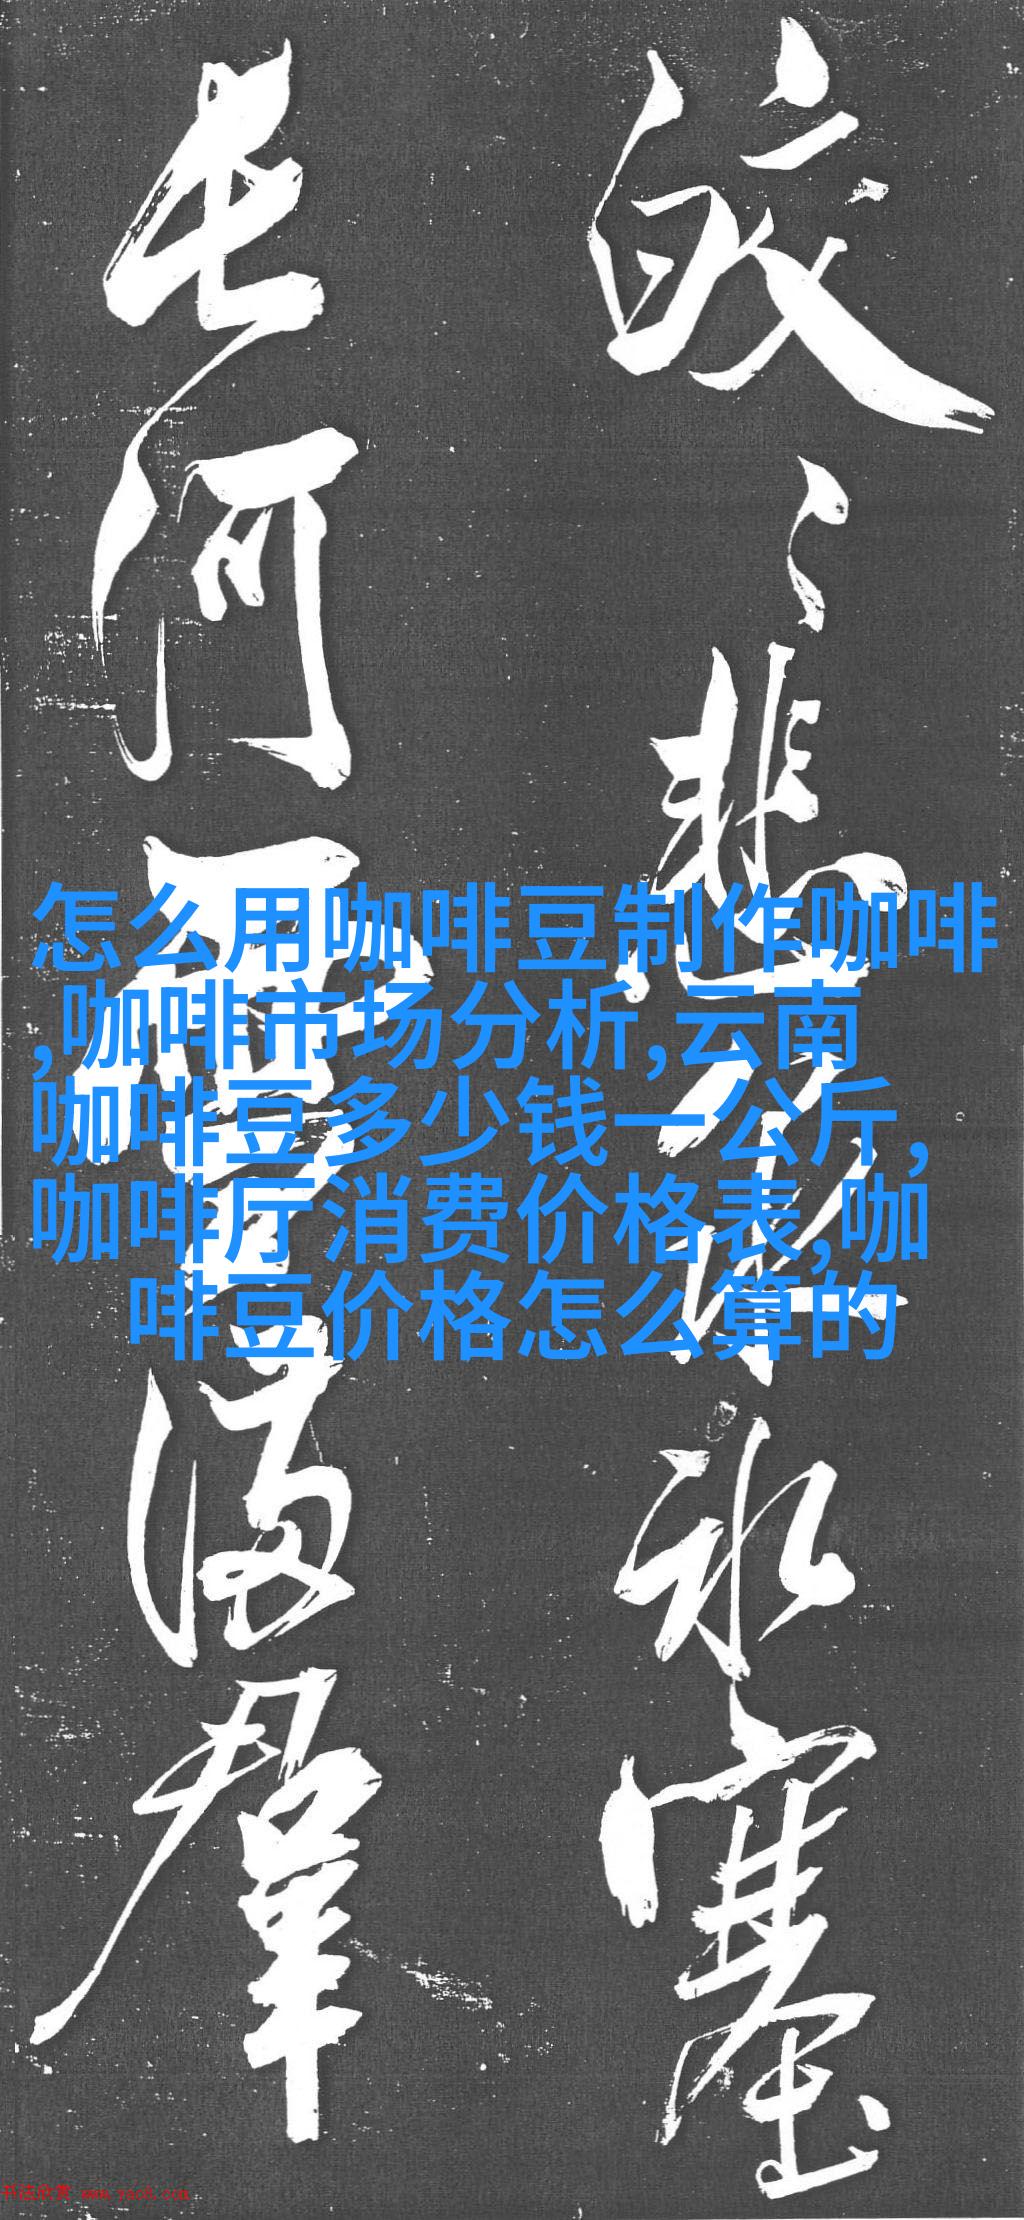 皎〻悲 冰塞
長河雪滿群
怎么用咖啡豆制作咖啡
,咖啡市场分析,云南
咖啡豆多少钱一公斤,
咖啡厅消费价格表,咖
啡豆价格怎么算的
书法欣赏 www.yac8.com